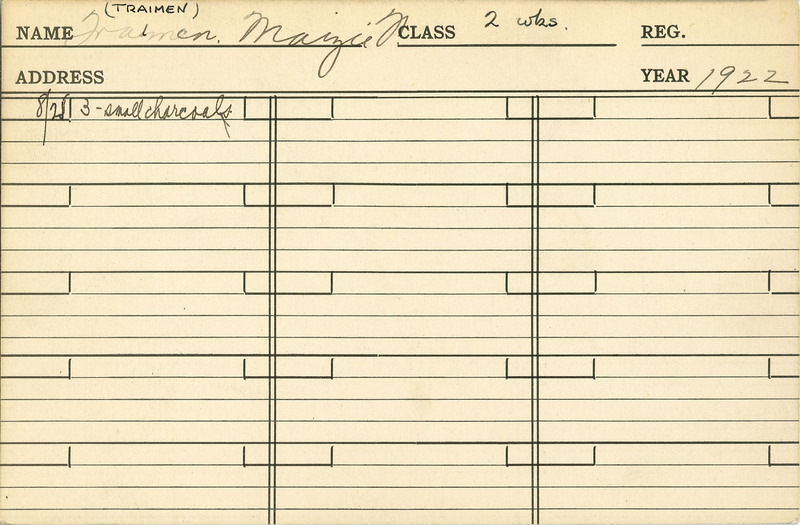 (TRAIMEN)
NAME Traimen. Maizie N CLASS 2 wks. REG.
ADDRESS YEAR 1922
8/28 3-small charcoals